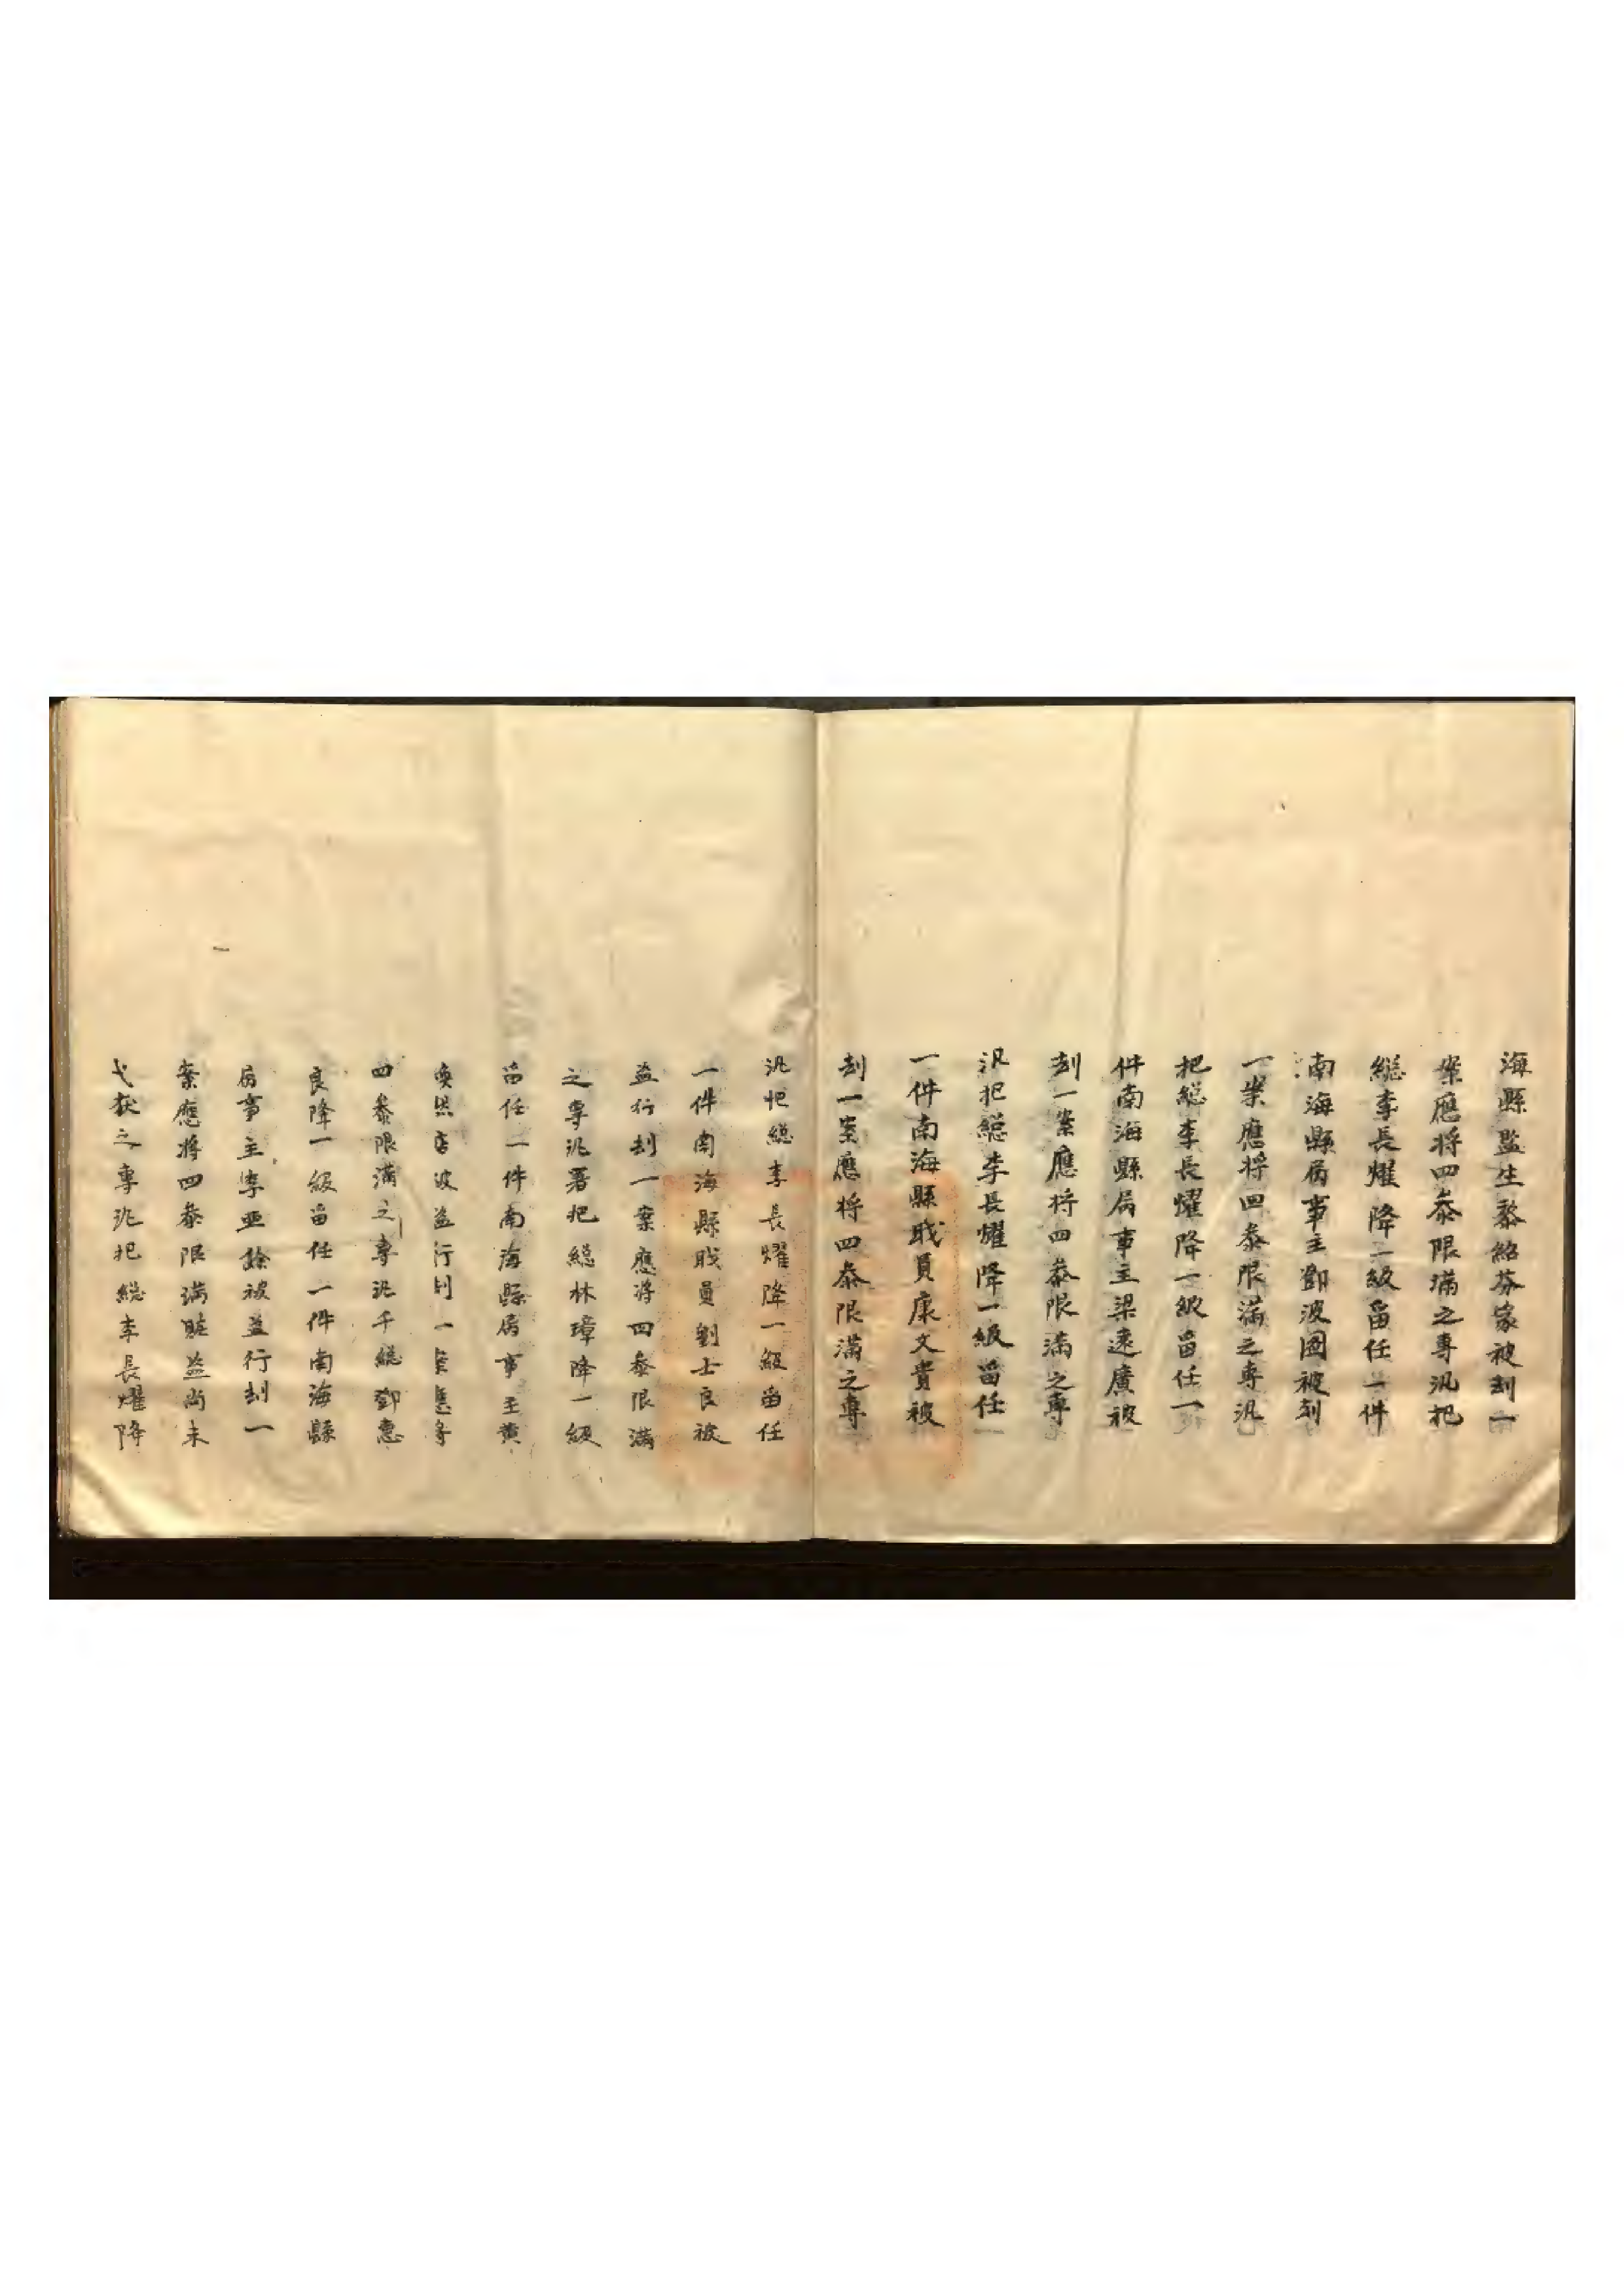 海縣監生黎紹芬家被刦一
案應将四叅限滿之專汛把
總李長耀降一級畱任一件
南海縣屆事主鄧波圖被刦
一案應将四叅限滿之專汛
把總李長耀降一級畱任一
件南海縣屆事主梁遠廣被
刦一案應将四叅限滿之專
汛把總李長耀降一級畱任
一件南海縣戝員康文貴被
刦一案應将四叅限滿之專
汛把總李長耀降一級畱任
一件南海縣戝員劉士良被
盜行刦一案應将四叅限滿
之專汛署把總林璋降一級
畱任一件南海縣屆事主黄
煥 店被盜行刦一案應将
四叅限滿之專汛千總鄧惠
良降一級畱任一件南海縣
屆事主李亞餘被盜行刦一
案應将四叅限滿賍盜尚未
弋获之專汛把總李長耀降